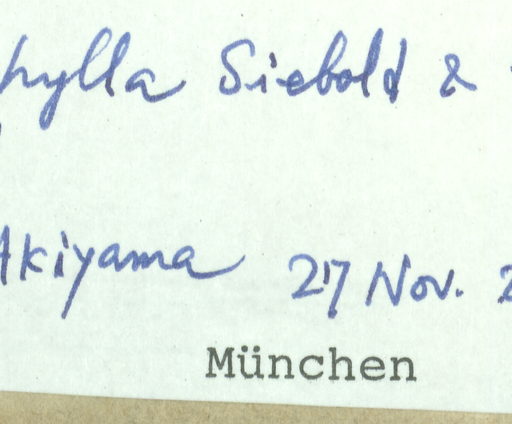 phylla Siebold &
Akiyama 27 Nov. 2
München